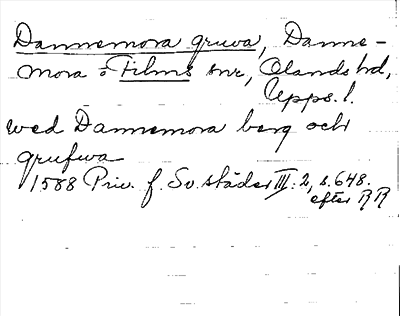 Dannemora gruva, Danne-
mora o Films snr, Olands hd,
Upps. l.
wed Dannemora berg och
grufwa
1588 Priv. f. Sv. städer III: 2, s. 648.
efter RR